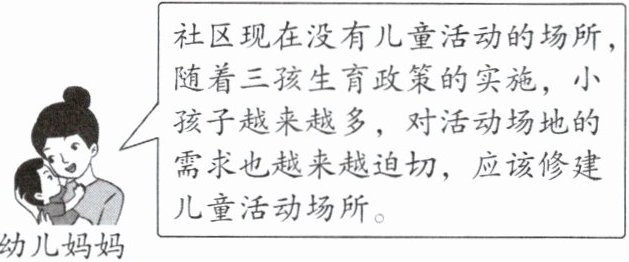 社区现在没有儿童活动的场所，
随着三孩生育政策的实施，小
孩子越来越多，对活动场地的
需求也越来越迫切，应该修建
儿童活动场所。
幼儿妈妈